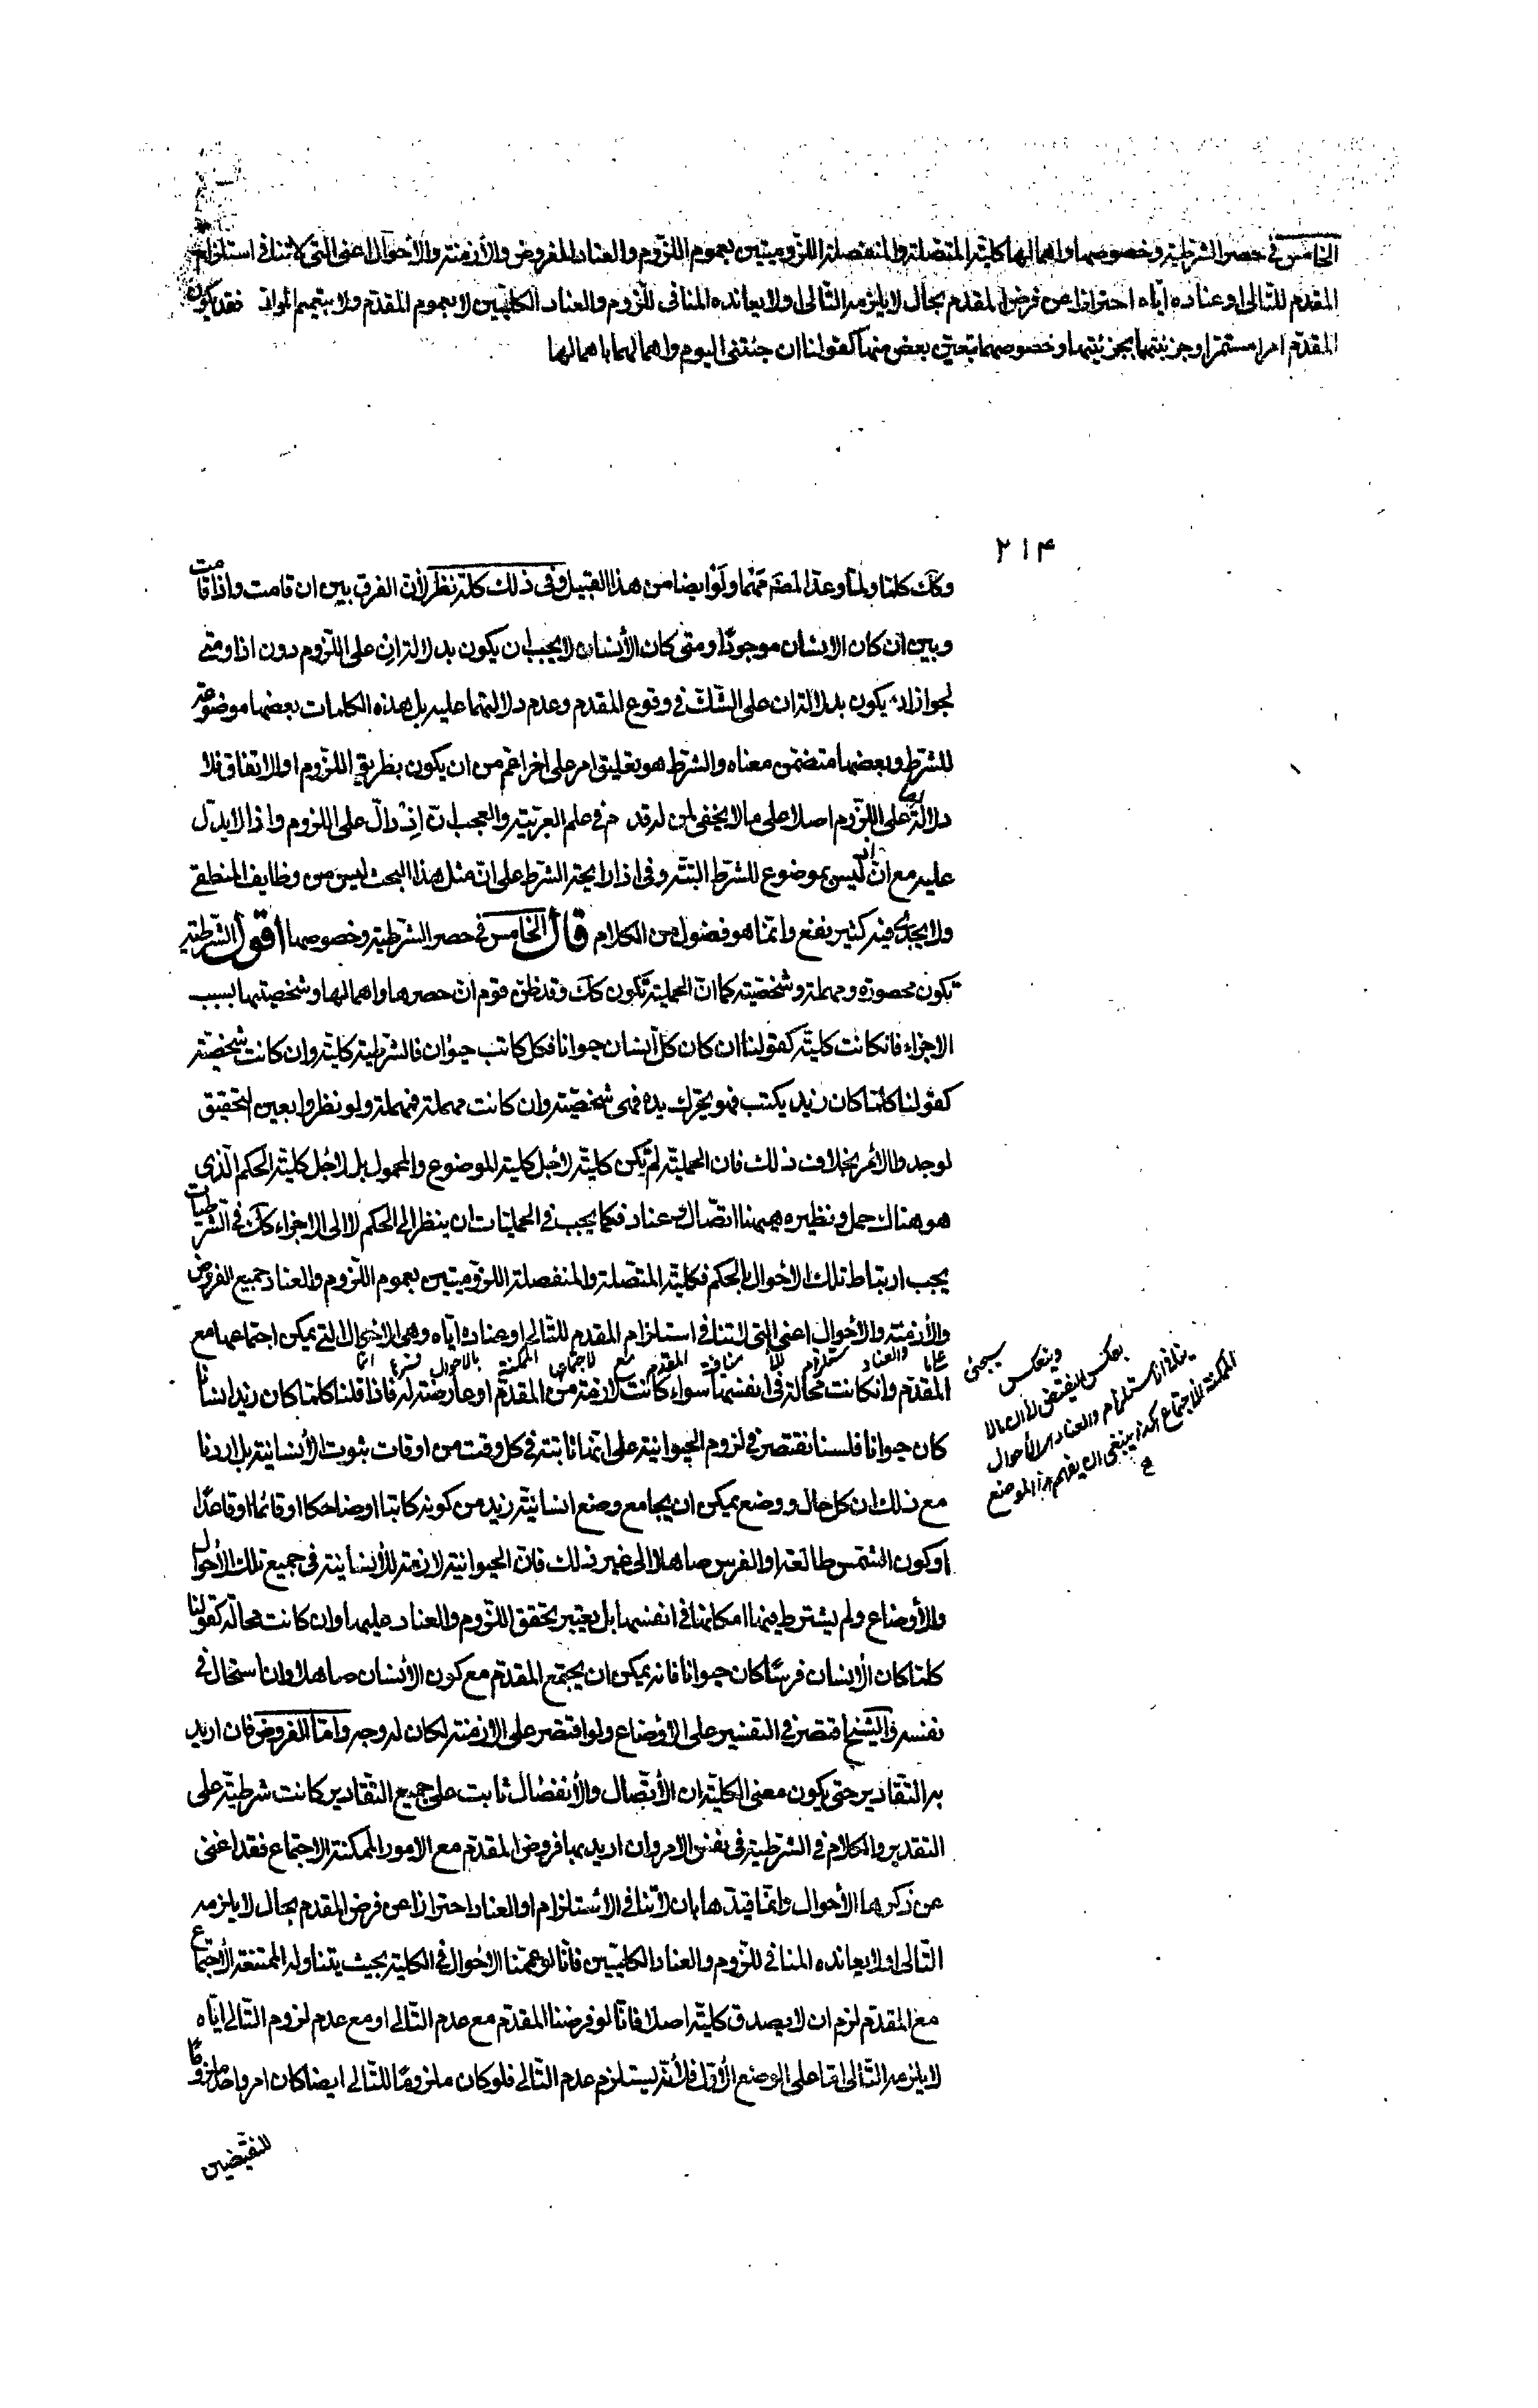 الخامس في حصر الشرطية وخصوصها واهمالها كلية المتصلة والمنفصلة اللزوميتين بعموم اللزوم والعناد المفروض والأزمنة والأحوال اعنى التى لا تنافى استلزام
المقدم للتالى او عناده اياه احترازا عن فرض المقدم بحال لا يلزمه التالى او لا يعانده المنافى للزوم والعناد الكليين لا بعموم المقدم ولا بتعميم المواد فقد يكون
المقدم امرا مستمرا وجزئيتهما بجزئيتها وخصوصهما بتعين بعض منها كقولنا ان جئتنى اليوم واهمالهما باهمالها
٢١۴
وكك كلما ولما وعد المصَ مهما ولو ايضا من هذا القبيل وفى ذلك كله نظر لأن الفرق بين ان قامت واذا قامت
وبين ان كان الانسان موجودًا ومتى كان الأنسان لا يجب ان يكون بدلالة ان على اللزوم دون اذا ومتى
لجواز ان يكون بدلالة ان على الشك فى وقوع المقدم وعدم دلالتهما عليه بل هذه الكلمات بعضها موضوعة
للشرط وبعضها متضمن معناه والشرط هو تعليق امر على اخر اعم من ان يكون بطريق اللزوم او الاتفاق فلا
دلالة لها على اللزوم اصلا على ما لا يخفى لمن له قدم فى علم العربية والعجب ان اِذْ دالّ على اللزوم واذا لا يدل
عليه مع ان اذ ليس بموضوع للشرط البتة وفى اذا رايحة الشرط على ان مثل هذا البحث ليس من وظايف المنطقى
ولا يجدى فيه كثير نفع وانما هو فضول من الكلام قال الخامس فى حصر الشرطية وخصوصها اقول الشرطية
تكون محصورة ومهملة وشخصية كما ان الحملية تكون كك وقد ظن قوم ان حصرها واهمالها وشخصيتها بسبب
الاجزاء فان كانت كلية كقولنا ان كان كل انسان حيوانا فكل كاتب حيوان فالشرطية كلية وان كانت شخصية
كقولنا كلما كان زيد يكتب فهو يحرك يده فهى شخصية وان كانت مهملة فمهملة ولو نظروا بعين التحقيق
لوجدوا الأمر بخلاف ذلك فان الحملية لم تكن كلية لأجل كلية الموضوع والمحمول بل لأجل كلية الحكم الّذى
هو هناك حمل ونظيره هيهنا اتصال او عناد فكما يجب فى الحمليات ان ينظر الى الحكم لا الى الاجزاء كك فى الشرطيات
يجب ارتباط تلك الأحوال بالحكم فكلية المتصلة والمنفصلة اللزوميتين بعموم اللزوم والعناد جميع الفروض
والأزمنة والأحوال اعنى التى لا تنافى استلزام المقدم للتالى او عناده اياه وهى الاحوال التى يمكن اجتماعها مع
المقدم وان كانت محالة فى انفسها سواء كانت لازمة من المقدم او عارضة له فاذا قلنا كلما كان زيد انسانا
كان حيوانا فلسنا نقتصر فى لزوم الحيوانية على انها ثابتة فى كل وقت من اوقات ثبوت الأنسانية بل اردنا
مع ذلك ان كل حال ووضع يمكن ان يجامع وضع انسانية زيد من كونه كاتبا او ضاحكا او قائما او قاعدًا
او كون الشمس طالعة او الفرس صاهلا الى غير ذلك فان الحيوانية لازمة للأنسانية فى جميع تلك الأحوال
والأوضاع ولم يشترط فيها امكانها فى انفسها بل يعتبر تحقق اللزوم والعناد عليها وان كانت محالة كقولنا
كلما كان الأنسان فرسًا كان حيوانا فانه يمكن ان يجتمع المقدم مع كون الأنسان صاهلا وان استحال فى
نفسه والشيخ اقتصر فى التفسير على الأوضاع ولو اقتصر على الأزمنة لكان له وجه واما الفروض فان اريد
به التقادير حتى يكون معنى الكلية ان الأتصال والأنفصال ثابت على جميع التقادير كانت شرطية على
التقدير والكلام فى الشرطية فى نفس الامر وان اريد بها فروض المقدم مع الامور الممكنة الاجتماع فقد اغنى
عن ذكرها الأحوال وانما قيدها بان لا تنافى الاستلزام او العناد احترازا عن فرض المقدم بحال لا يلزمه
التالى او لا يعانده المنافى للزوم والعناد الكليين فانا لو عممنا الاحوال فى الكلية بحيث يتناول الممتنعة الأجتماع
مع المقدم لزم ان لا يصدق كلية اصلا فانا لو فرضنا المقدم مع عدم التالى او مع عدم لزوم التالى اياه
لا يلزمه التالى اما على الوضع الأول فلأنه يستلزم عدم التالى فلو كان ملزومًا للتالى ايضا كان امر واحد ملزومًا
للنقيضين
وينعكس
بعكس النقيض